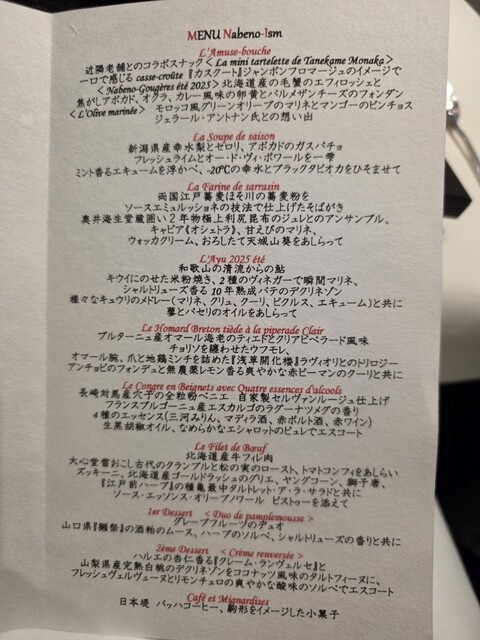 MENU Nabeno-Ism
L'Amuse-bouche
近隣老舗とのコラボスナック < La mini tartelette de Tanekame Monaka >
一口で感じる casse-croûte 『カスクート』ジャンボンフロマージュのイメージで
< Nabeno-Gougères été 2025 > 北海道産の毛蟹のエフィロッシェと
焦がしアボカド、オクラ、カレー風味の卵黄とパルメザンチーズのフォンダン
< L'Olive marinée > モロッコ風グリーンオリーブのマリネとマンゴーのピンチョス
ジェラール・アントナン氏との想い出
La Soupe de saison
新潟県産幸水梨とセロリ、アボカドのガスパチョ
フレッシュライムとオー・ド・ヴィ・ポワールを一雫
ミント香るエキュームを浮かべ、-20℃の幸水とブラックタピオカをひそませて
La Farine de sarrasin
両国江戸蕎麦ほそ川の蕎麦粉を
ソースエミュルッショネの技法で仕上げたそばがき
奥井海生堂蔵囲い2年物極上利尻昆布のジュレとのアンサンブル、
キャビア(オシェトラ)、甘えびのマリネ、
ウォッカクリーム、おろしたて天城山葵をあしらって
L'Ayu 2025 été
和歌山の清流からの鮎
キウイにのせた米粉焼き、2種のヴィネガーで瞬間マリネ、
シャルトリューズ香る10年熟成パテのデクリネゾン
様々なキュウリのメドレー(マリネ、クリュ、クーリ、ピクルス、エキューム)と共に
蓼とパセリのオイルをあしらって
Le Homard Breton tiède à la piperade Clair
ブルターニュ産オマール海老のティエドとクリアピペラード風味
チョリソを纏わせたウフモレ、
オマール腕、爪と地鶏ミンチを詰めた『浅草開化楼』ラヴィオリとのトリロジー
アンチョビのフォンデュと無農薬レモン香る爽やかな赤ピーマンのクーリと共に
Le Congre en Beignets avec Quatre essences d'alcools
長崎対馬産穴子の全粒粉ベニエ 自家製セルヴァンルージュ仕上げ
フランスブルゴーニュ産エスカルゴのラグーナツメグの香り
4種のエッセンス(三河みりん、マディラ酒、赤ポルト酒、赤ワイン)
生黒胡椒オイル、なめらかなエシャロットのピュレでエスコート
Le Filet de Bœuf
北海道産牛フィレ肉
大心堂雷おこし古代のクランブルと松の実のロースト、トマトコンフィをあしらい
ズッキーニ、北海道産ゴールドラッシュのグリエ、ヤングコーン、獅子唐、
『江戸前ハーブ』の種亀最中タルトレット・ア・ラ・サラドと共に
ソース・エッソンス・オリーブノワール ピストゥーを添えて
1er Dessert < Duo de pamplemousse >
グレープフルーツのデュオ
山口県『獺祭』の酒粕のムース、ハーブのソルベ、シャルトリューズの香りと共に
2ème Dessert < Crème renversée >
ハルエの杏仁香る『クレーム・ランヴェルセ』と
山梨県産完熟白桃のデクリネゾンをココナッツ風味のタルトフィーヌに、
フレッシュヴェルヴェーヌとリモンチェロの爽やかな酸味のソルベでエスコート
Café et Mignardises
日本堤 バッハコーヒー、駒形をイメージした小菓子